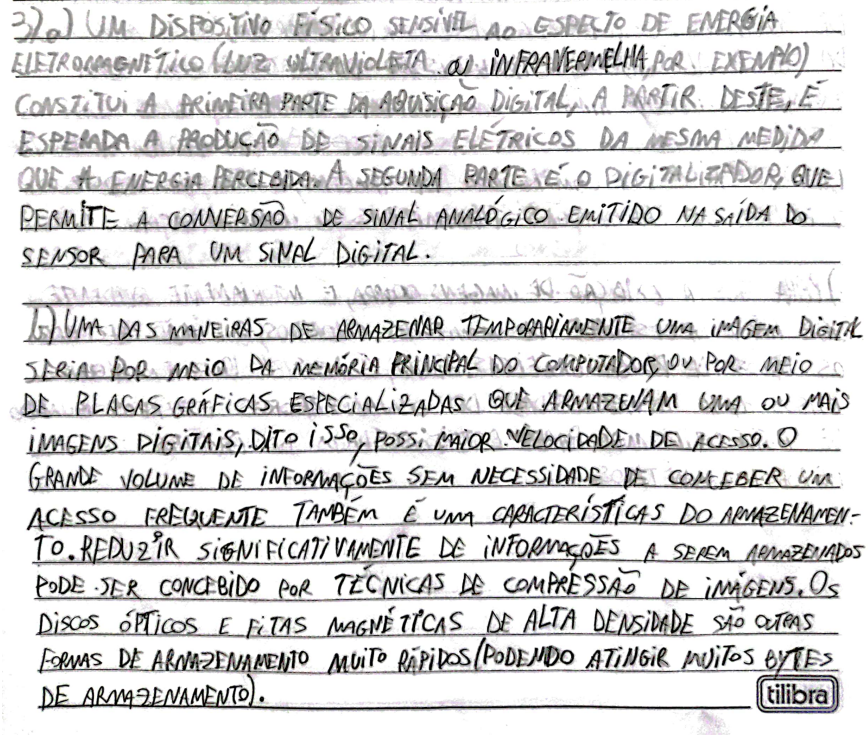 3) a) UM DISPOSITIVO FÍSICO SENSÍVEL AO ESPECTO DE ENERGIA
ELETROMAGNÉTICO (LUZ ULTRAVIOLETA OU INFRAVERMELHA, POR EXEMPLO)
CONSTITUI A PRIMEIRA PARTE DA AQUISIÇÃO DIGITAL, A PARTIR DESTE, É
ESPERADA A PRODUÇÃO DE SINAIS ELÉTRICOS DA MESMA MEDIDA
QUE A ENERGIA PERCEBIDA. A SEGUNDA PARTE É O DIGITALIZADOR, QUE
PERMITE A CONVERSÃO DE SINAL ANALÓGICO EMITIDO NA SAÍDA DO
SENSOR PARA UM SINAL DIGITAL.
b) UMA DAS MANEIRAS DE ARMAZENAR TEMPORARIAMENTE UMA IMAGEM DIGITAL
SERIA POR MEIO DA MEMÓRIA PRINCIPAL DO COMPUTADOR, OU POR MEIO
DE PLACAS GRÁFICAS ESPECIALIZADAS QUE ARMAZENAM UMA OU MAIS
IMAGENS DIGITAIS, DITO ISSO, POSSI MAIOR VELOCIDADE DE ACESSO. O
GRANDE VOLUME DE INFORMAÇÕES SEM NECESSIDADE DE CONCEBER UM
ACESSO FREQUENTE TAMBÉM É UMA CARACTERÍSTICAS DO ARMAZENAMEN-
TO. REDUZIR SIGNIFICATIVAMENTE DE INFORMAÇÕES A SEREM ARMAZENADOS
PODE SER CONCEBIDO POR TÉCNICAS DE COMPRESSÃO DE IMAGENS. OS
DISCOS ÓPTICOS E FITAS MAGNÉTICAS DE ALTA DENSIDADE SÃO OUTRAS
FORMAS DE ARMAZENAMENTO MUITO RÁPIDOS (PODENDO ATINGIR MUITOS BYTES
DE ARMAZENAMENTO).
tilibra